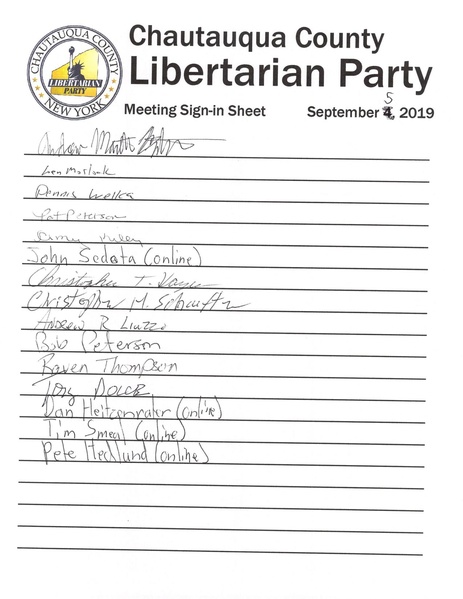 CHAUTAUQUA COUNTY
LIBERTARIAN
PARTY
NEW YORK
Chautauqua County
Libertarian Party
Meeting Sign-in Sheet September 5, 2019
Andrew
Dennis
Pat Peterson
John Sedota (online)
Christopher T.
Christopher M.
Andrew R Liuzzo
Bob Peterson
Raven Thompson
Tony Dolce
Dan Heitzenrater (online)
Tim Smeal (online)
Pete Hecklund (online)